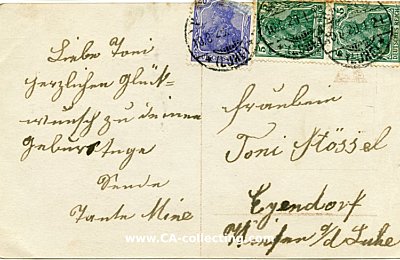 Liebe Toni
herzlichen Glück-
wunsch zu deinem
Geburtstage
Sende
Tante Mine
Fräulein
Toni Stössel
Eyendorf
a/d Luhe
www.CA-collecting.com
5
5